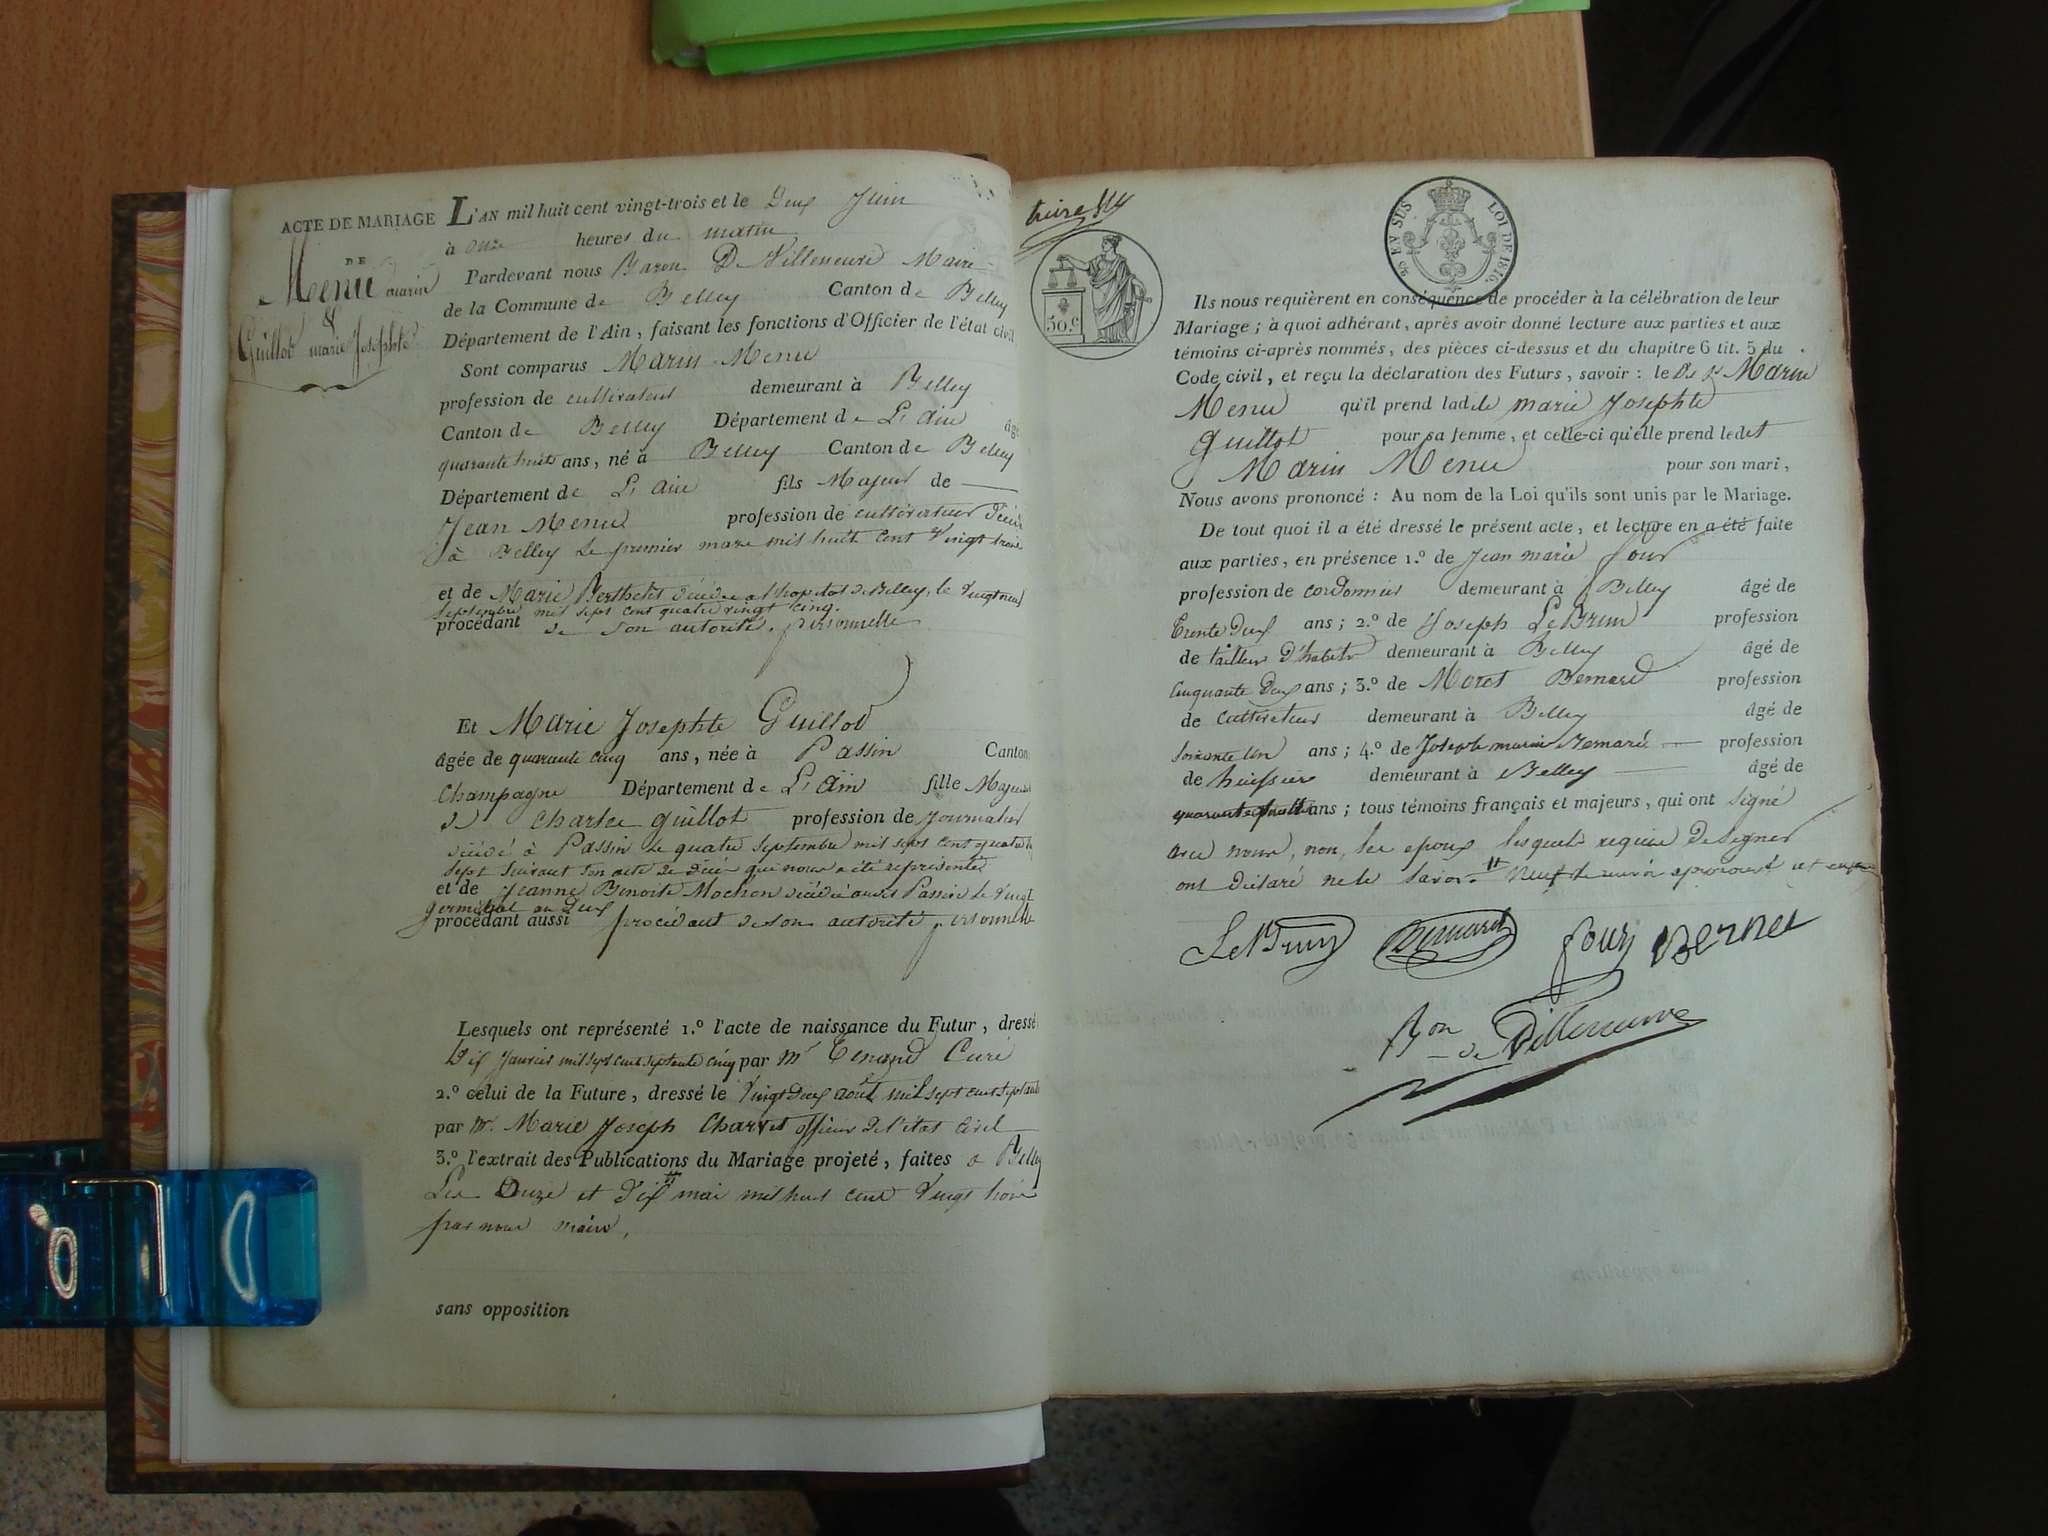 ACTE DE MARIAGE
DE
Menu marin
&
Guillot marie Josephte
L'AN mil huit cent vingt-trois et le Deux Juin
à onze heures du matin
Pardevant nous Baron De Villeneuve Maire
de la Commune de Belley Canton de Belley
Département de l'Ain, faisant les fonctions d'Officier de l'état civil
Sont comparus Marin Menu
profession de cultivateur demeurant à Belley
Canton de Belley Département de L'Ain âgé
quarante huit ans, né à Belley Canton de Belley
Département de L'Ain fils Majeur de
Jean Menu profession de cultivateur décédé
à Belley le premier mars mil huit cent vingt trois
et de Marie Berthelet décédée a l'hopital de Belley, le vingt neuf
septembre mil sept cent quatre vingt cinq.
procédant de son autorité personnelle
Et Marie Josephte Guillot
âgée de quarante cinq ans, née à Passin Canton
Champagne Département de L'Ain fille Majeure
de Charles Guillot profession de Journalier
décédé à Passin le quatre septembre mil sept cent quatre
sept suivant son acte de décès qui nous a été représenté
et de Jeanne Benoite Mochon décédée audit Passin le vingt
germinal an Deux
procédant aussi procédant de son autorité personnelle
Lesquels ont représenté 1.º l'acte de naissance du Futur, dressé
dix Janvier mil sept cent septante cinq par Mr Curé
2.º celui de la Future, dressé le vingt deux août mil sept cent septante
par Mr. Marie Joseph Charvet officier de l'état civil
3.º l'extrait des Publications du Mariage projeté, faites à Belley
Les onze et dix mai mil huit cent vingt trois
par nous maire.
sans opposition
50.c
25 EN SUS LOI DE 1816.
Ils nous requièrent en conséquence de procéder à la célébration de leur
Mariage; à quoi adhérant, après avoir donné lecture aux parties et aux
témoins ci-après nommés, des pièces ci-dessus et du chapitre 6 tit. 5 du
Code civil, et reçu la déclaration des Futurs, savoir: le Marin
Menu qu'il prend ladite marie Josephte
Guillot pour sa femme, et celle-ci qu'elle prend ledit
Marin Menu pour son mari,
Nous avons prononcé: Au nom de la Loi qu'ils sont unis par le Mariage.
De tout quoi il a été dressé le présent acte, et lecture en a été faite
aux parties, en présence 1.º de Jean marie Jour
profession de cordonnier demeurant à Belley âgé de
Trente Deux ans; 2.º de Joseph LeBrun profession
de tailleur d'habits demeurant à Belley âgé de
Cinquante Deux ans; 3.º de Moret Bernard profession
de cultivateur demeurant à Belley âgé de
soixante un ans; 4.º de Joseph marin Bernard profession
de huissier demeurant à Belley âgé de
quarante quatre ans; tous témoins français et majeurs, qui ont signé
avec nous, non les epoux lesquels requis de signer
ont déclaré ne le savoir.
LeBrun Bernard Jour Bernet
Bon de Villeneuve